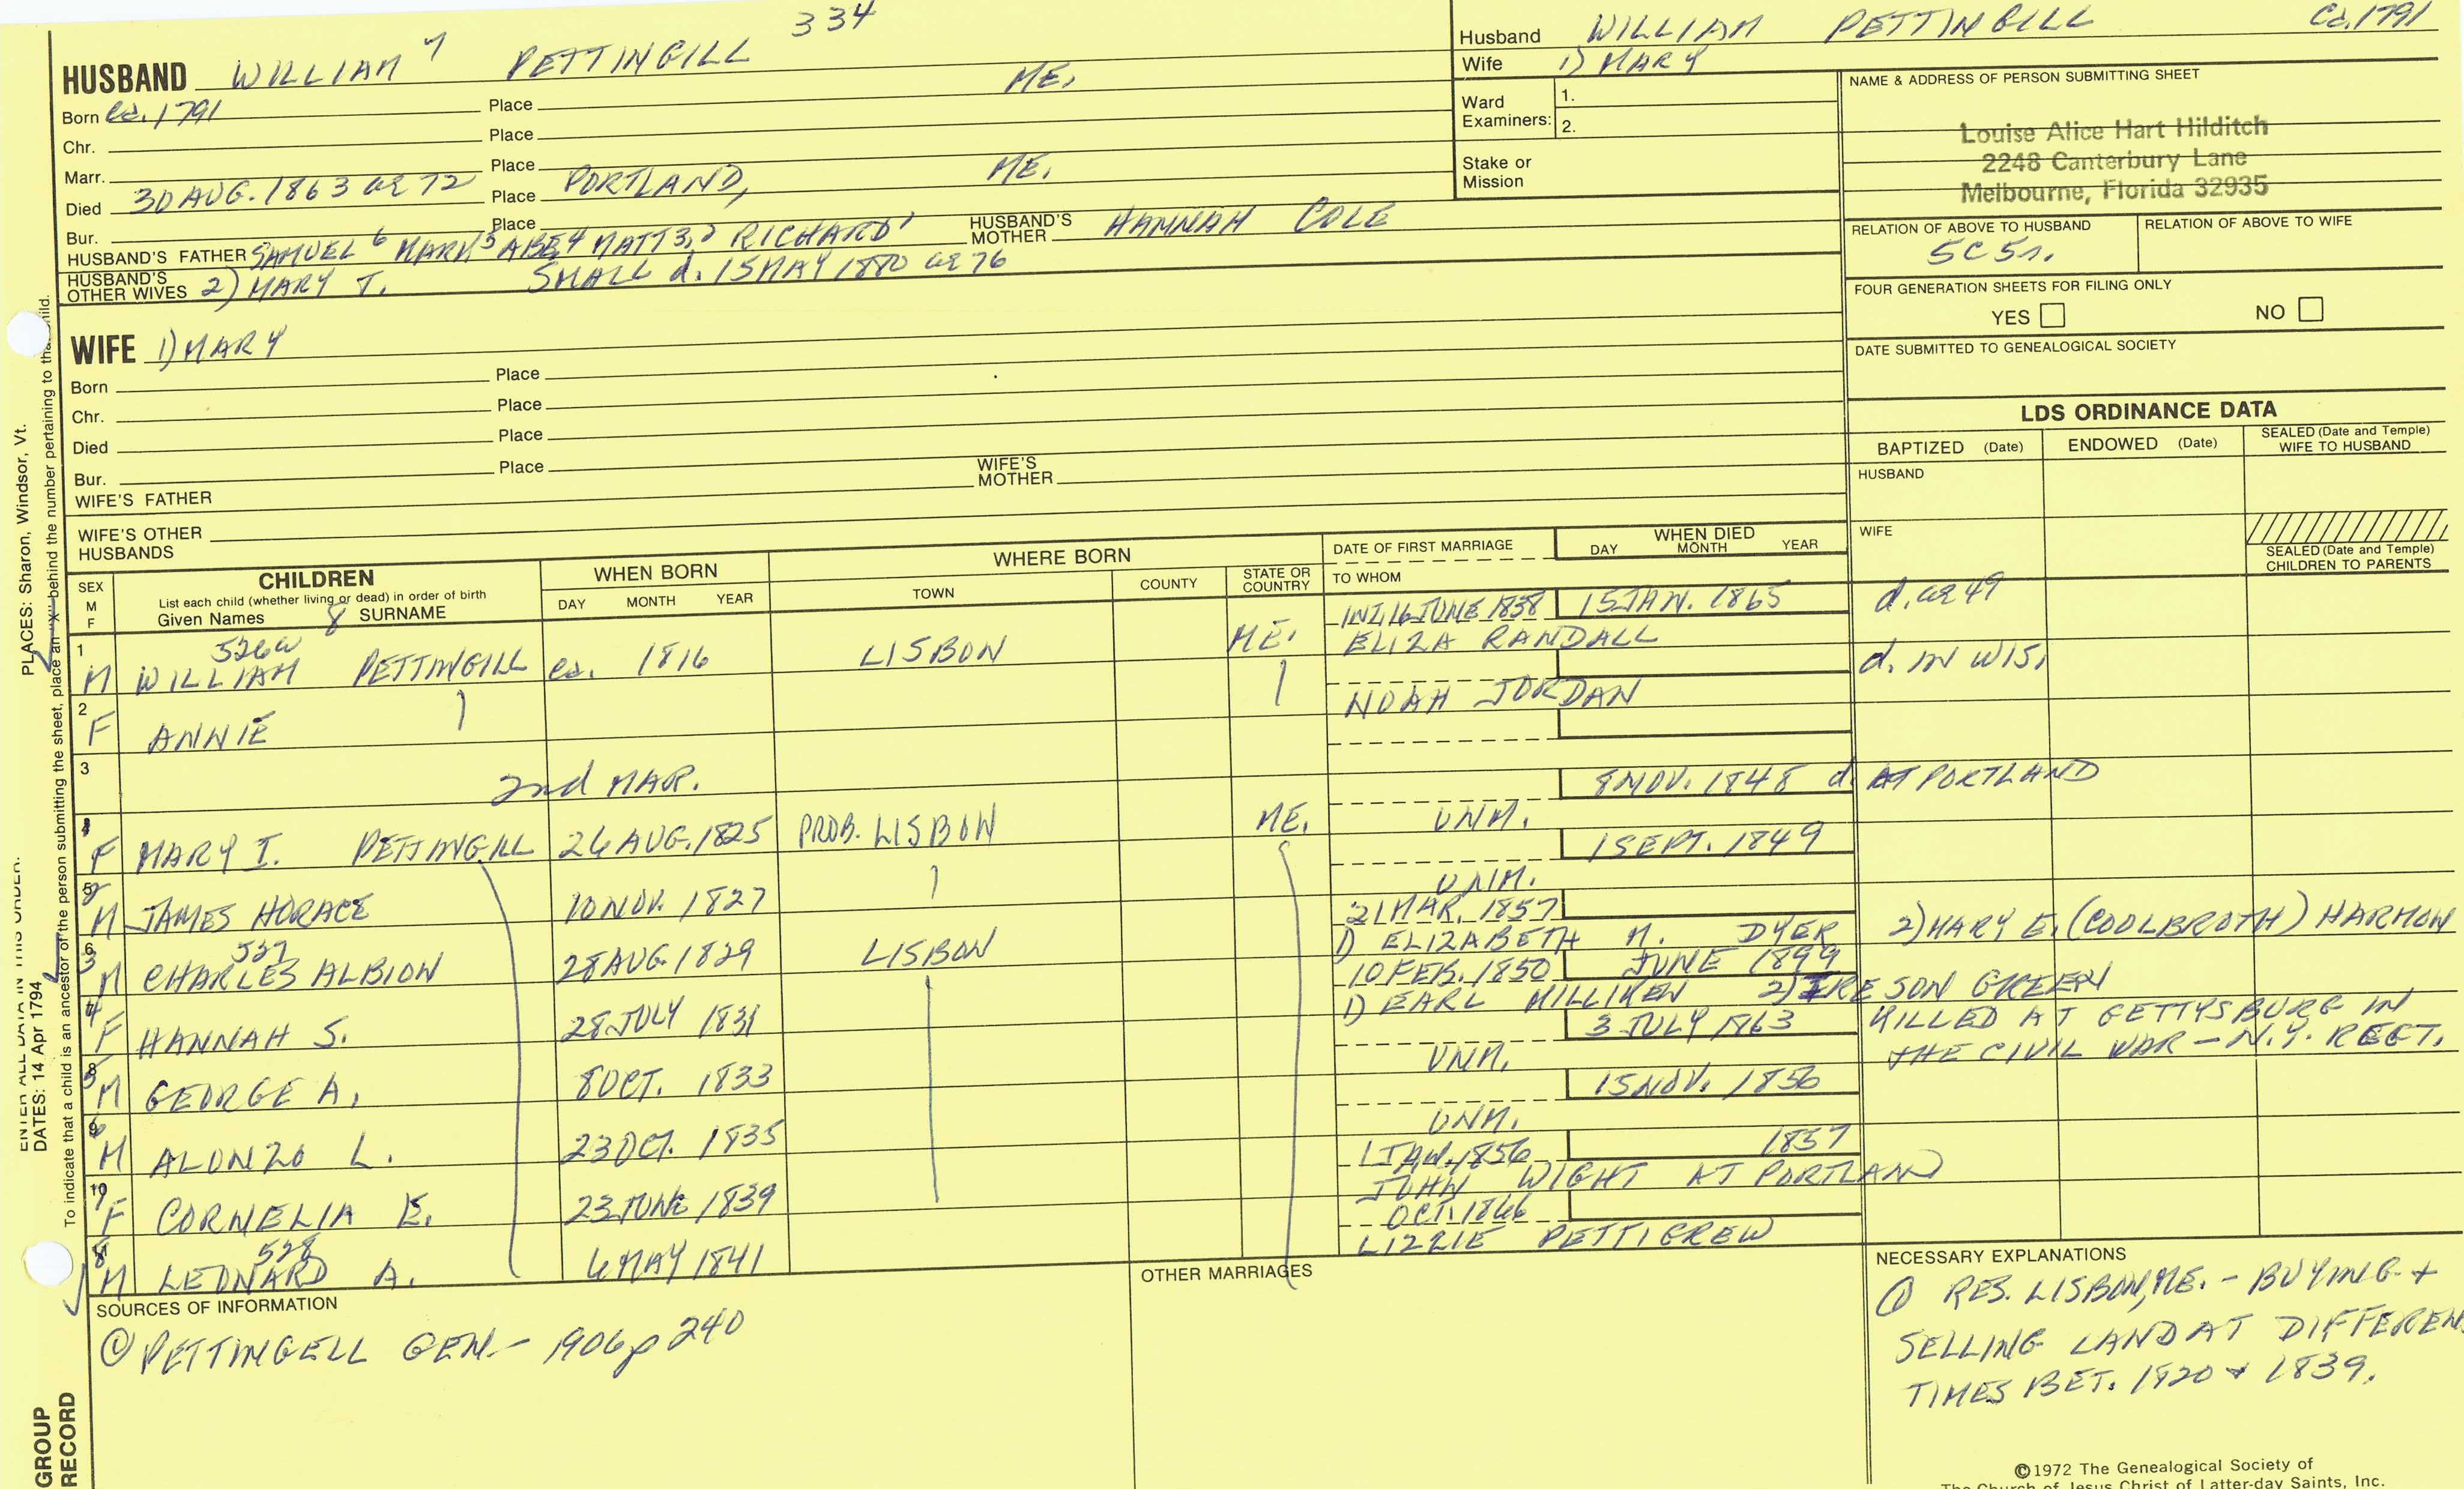 334
HUSBAND WILLIAM 7 PETTINGILL
Born ca. 1791 Place ME.
Chr. Place
Marr. Place
Died 30 AUG. 1863 ae 72 Place PORTLAND, ME.
Bur. Place
HUSBAND'S FATHER SAMUEL 6 MARK 5 ABE 4 MATT 3,2 RICHARD 1 HUSBAND'S MOTHER HANNAH COLE
HUSBAND'S OTHER WIVES 2) MARY T. SMALL d. 15 MAY 1880 ae 76
WIFE 1) MARY
Born Place
Chr. Place
Died Place
Bur. Place
WIFE'S FATHER WIFE'S MOTHER
WIFE'S OTHER HUSBANDS
Husband WILLIAM PETTINGILL Ca. 1791
Wife 1) MARY
Ward Examiners: 1.
2.
Stake or Mission
NAME & ADDRESS OF PERSON SUBMITTING SHEET
Louise Alice Hart Hilditch
2248 Canterbury Lane
Melbourne, Florida 32935
RELATION OF ABOVE TO HUSBAND RELATION OF ABOVE TO WIFE
5C5r.
FOUR GENERATION SHEETS FOR FILING ONLY
YES NO
DATE SUBMITTED TO GENEALOGICAL SOCIETY
LDS ORDINANCE DATA
BAPTIZED (Date) ENDOWED (Date) SEALED (Date and Temple) WIFE TO HUSBAND
HUSBAND
WIFE
SEALED (Date and Temple) CHILDREN TO PARENTS
SEX M F
CHILDREN
List each child (whether living or dead) in order of birth
Given Names 8 SURNAME
WHEN BORN
DAY MONTH YEAR
WHERE BORN
TOWN COUNTY STATE OR COUNTRY
DATE OF FIRST MARRIAGE
TO WHOM
WHEN DIED
DAY MONTH YEAR
INT. 16 JUNE 1838 15 JAN. 1865 d. ae 49
1 M 526a WILLIAM PETTINGILL ca. 1816 LISBON ME. ELIZA RANDALL
d. IN WIS.
2 F ANNIE NOAH JORDAN
3 2nd MAR.
8 NOV. 1848 d. AT PORTLAND
1 F MARY I. PETTINGILL 26 AUG. 1825 PROB. LISBON ME. UNM.
1 SEPT. 1849
5 2 M JAMES HORACE 10 NOV. 1827 UNM.
21 MAR. 1857
6 3 M 527 CHARLES ALBION 28 AUG. 1829 LISBON 1) ELIZABETH M. DYER 2) MARY E. (COOLBROTH) HARMON
10 FEB. 1850 JUNE 1899
4 F HANNAH S. 28 JULY 1831 1) EARL MILLIKEN 2) IRESON GREEN
3 JULY 1863 KILLED AT GETTYSBURG IN
8 5 M GEORGE A. 8 OCT. 1833 UNM. THE CIVIL WAR - N.Y. REGT.
15 NOV. 1856
9 6 M ALONZO L. 23 OCT. 1835 UNM.
1 JAN. 1856 1857
10 7 F CORNELIA E. 23 JUNE 1839 JOHN WIGHT AT PORTLAND
OCT. 1866
8 M 528 LEONARD A. 6 MAY 1841 LIZZIE PETTIGREW
SOURCES OF INFORMATION
① PETTINGELL GEN. - 1906 p 240
OTHER MARRIAGES
NECESSARY EXPLANATIONS
① RES. LISBON, ME. - BUYING +
SELLING LAND AT DIFFEREN
TIMES BET. 1820 + 1839.
©1972 The Genealogical Society of
The Church of Jesus Christ of Latter-day Saints, Inc.
PLACES: Sharon, Windsor, Vt.
ENTER ALL DATA IN THIS ORDER:
DATES: 14 Apr 1794
To indicate that a child is an ancestor of the person submitting the sheet, place an "X" behind the number pertaining to that child.
GROUP
RECORD